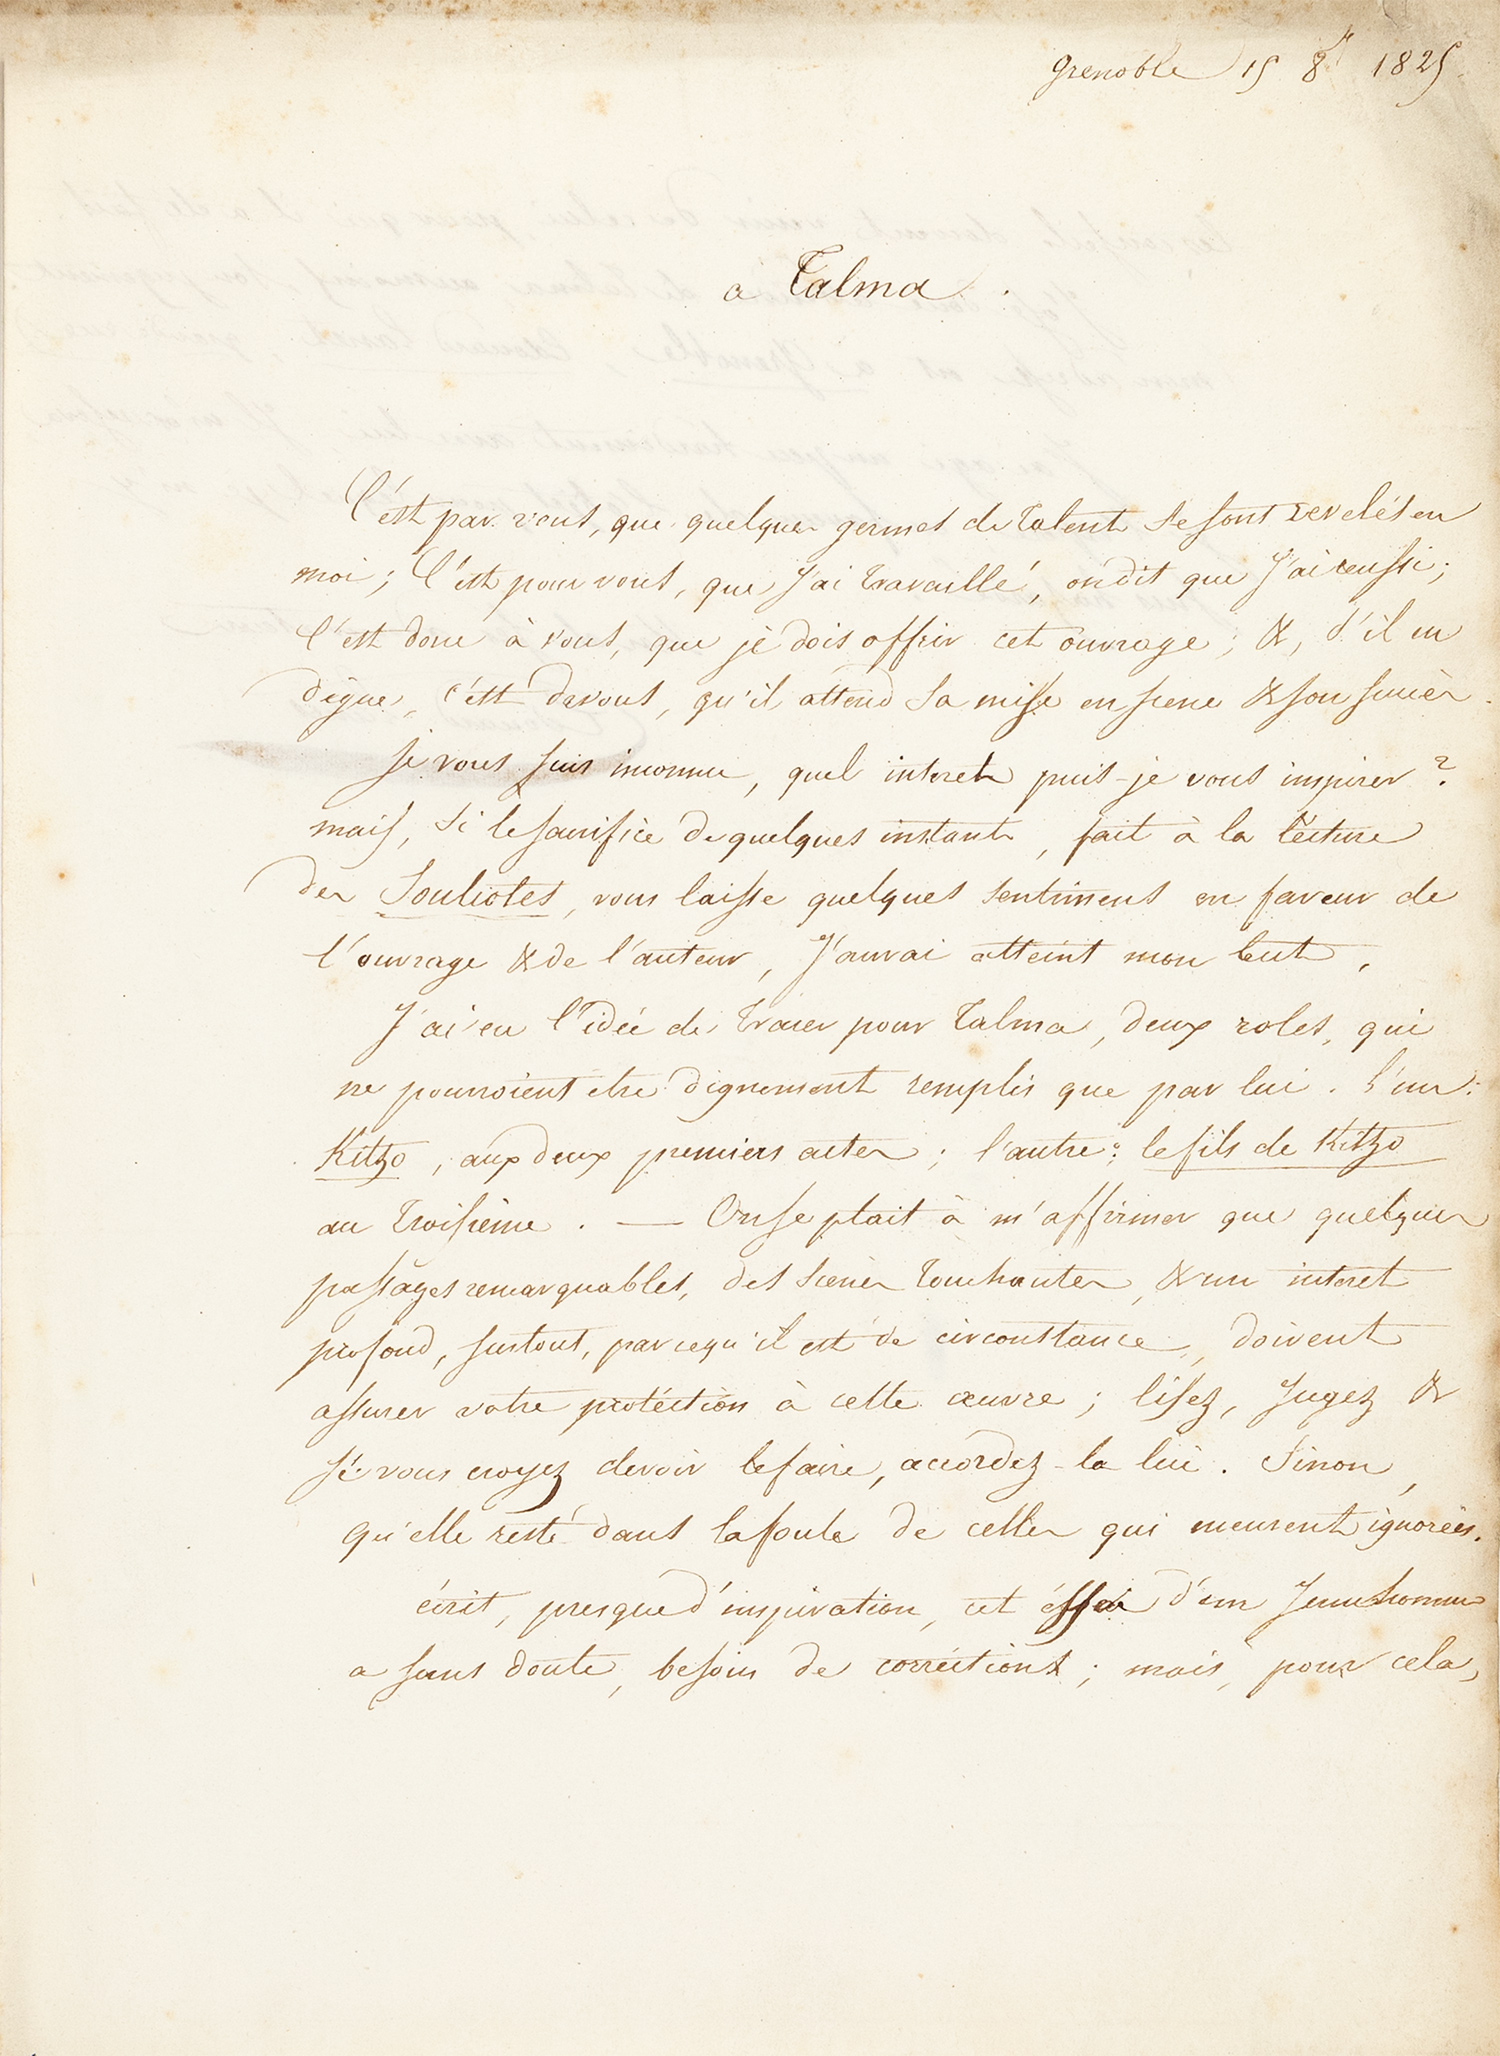 Grenoble 15 8r 1825
à Talma.
C'est par vous, que quelques germes de talent se sont revelés en
moi; C'est pour vous, que J'ai travaillé, on dit que J'ai reussi;
C'est donc à vous, que je dois offrir cet ouvrage; &, s'il en
digne, c'est de vous, qu'il attend sa mise en scene & son succès.
Je vous suis inconnu, quel interet puis-je vous inspirer?
mais, si le sacrifice de quelques instants, fait à la lecture
des Souliotes, vous laisse quelques sentimens en faveur de
l'ouvrage & de l'auteur, J'aurai atteint mon but.
J'ai eu l'idée de tracer pour Talma, deux roles, qui
ne pourroient etre dignement remplis que par lui. l'un:
Kitzo, aux deux premiers actes; l'autre: le fils de Kitzo
au troisième. — On se plait à m'affirmer que quelques
passages remarquables, des scenes touchantes, & un interet
profond, surtout, parcequ'il est de circonstance, doivent
assurer votre protéction à cette œuvre; lisez, Jugez &
si vous croyez devoir le faire, accordez-la lui. Sinon,
qu'elle reste dans la foule de celles qui meurent ignorées.
écrit, presque d'inspiration, cet éssai d'un Jeune homme
a sans doute, besoin de corréctions; mais, pour cela,